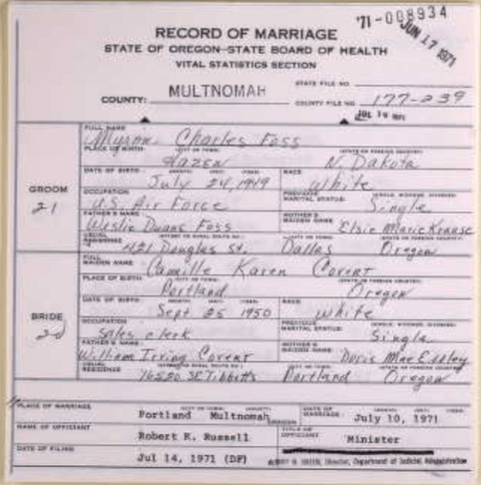 '71-008934
JUN 17 1971
RECORD OF MARRIAGE
STATE OF OREGON—STATE BOARD OF HEALTH
VITAL STATISTICS SECTION
STATE FILE NO.
COUNTY: MULTNOMAH
COUNTY FILE NO. 177-239
1971
GROOM
21
FULL NAME
Myron Charles Foss
PLACE OF BIRTH
Hazen N. Dakota
DATE OF BIRTH RACE
July 24, 1949 White
OCCUPATION PREVIOUS MARITAL STATUS:
U.S. Air Force Single
FATHER'S NAME MOTHER'S MAIDEN NAME
Weslie Duane Foss Elsie Marie Krause
USUAL RESIDENCE
421 Douglas St. Dallas Oregon
BRIDE
20
FULL MAIDEN NAME
Camille Karen Covert
PLACE OF BIRTH
Portland Oregon
DATE OF BIRTH RACE
Sept 25 1950 White
OCCUPATION PREVIOUS MARITAL STATUS:
Sales clerk Single
FATHER'S NAME MOTHER'S MAIDEN NAME
William Irving Covert Doris Mae
USUAL RESIDENCE
16520 SE Tibbetts Portland Oregon
PLACE OF MARRIAGE
Portland Multnomah OREGON DATE OF MARRIAGE: July 10, 1971
NAME OF OFFICIANT
Robert K. Russell TITLE OF OFFICIANT Minister
DATE OF FILING
Jul 14, 1971 (DF) Director, Department of Judicial Administration